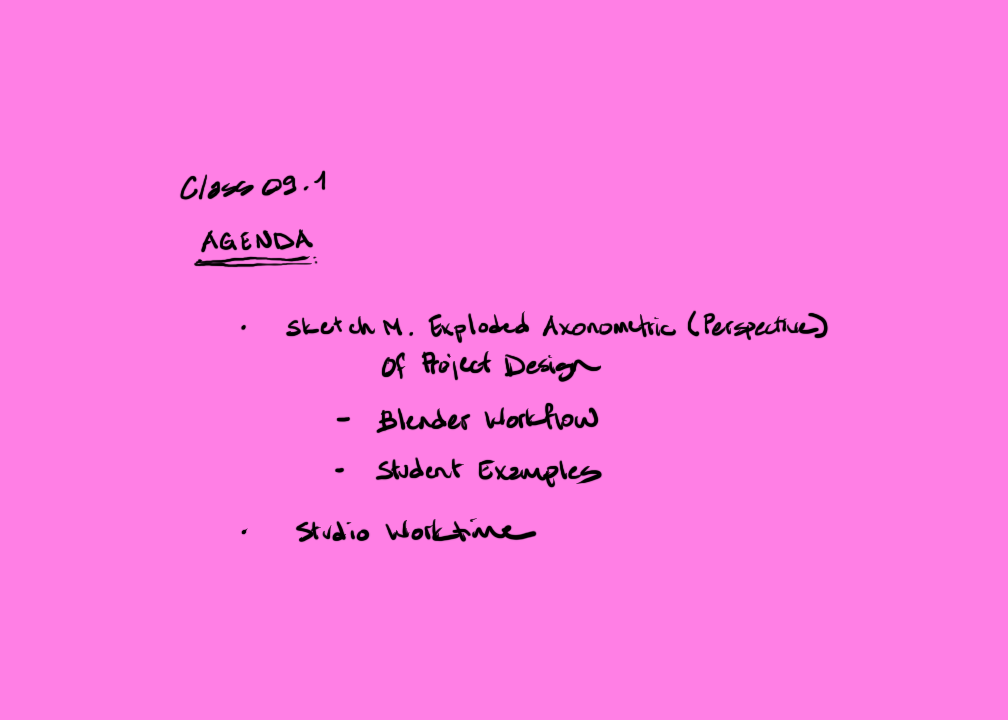 Class 09.1
AGENDA
· Sketch M. Exploded Axonometric (Perspective)
Of Project Design
- Blender Workflow
- Student Examples
· Studio Worktime